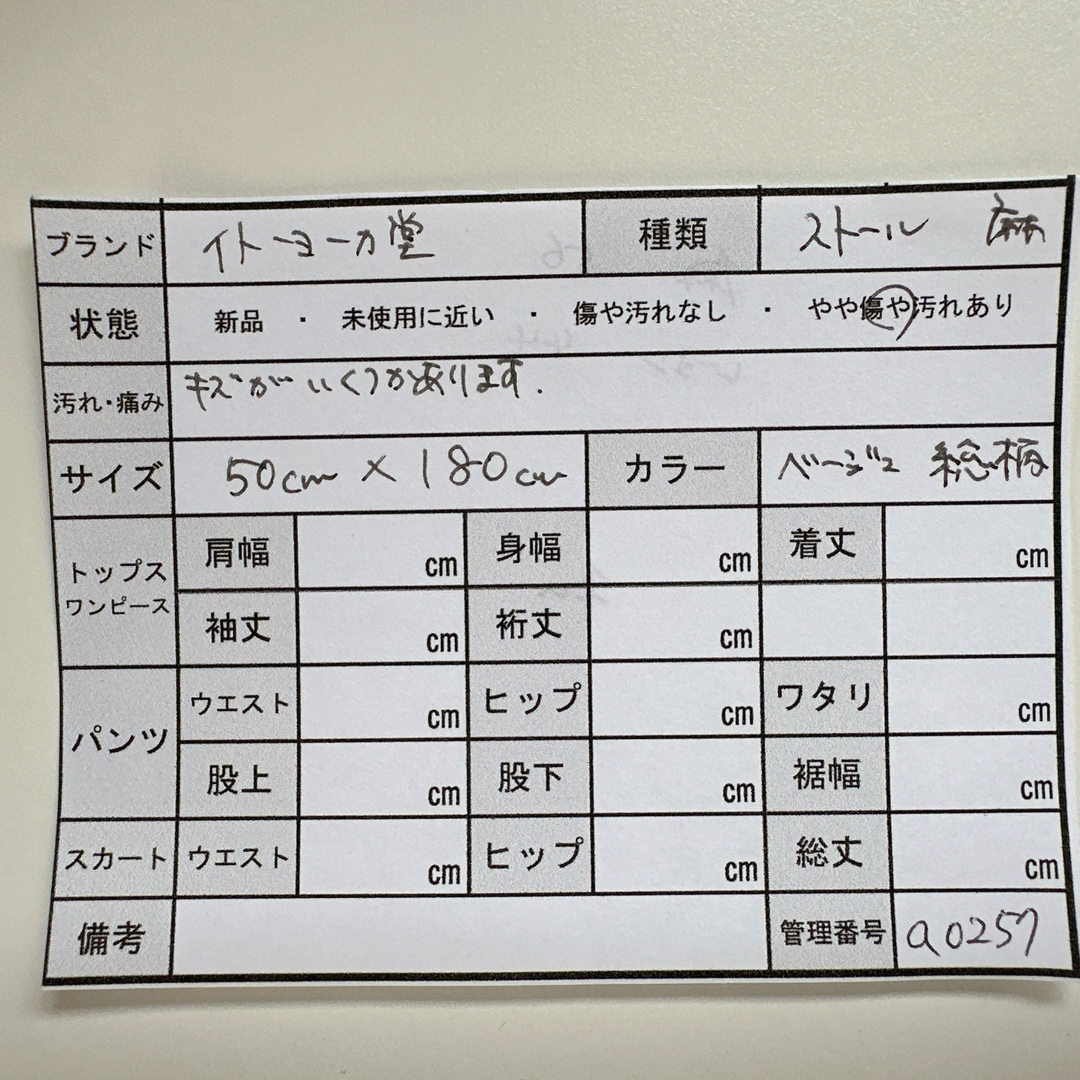 ブランド イトーヨーカ堂 種類 ストール 麻
状態 新品 ・ 未使用に近い ・ 傷や汚れなし ・ やや傷や汚れあり
汚れ・痛み キズがいくつかあります.
サイズ 50cm × 180cm カラー ベージュ 総柄
トップス
ワンピース
肩幅 cm 身幅 cm 着丈 cm
袖丈 cm 裄丈 cm
パンツ
ウエスト cm ヒップ cm ワタリ cm
股上 cm 股下 cm 裾幅 cm
スカート ウエスト cm ヒップ cm 総丈 cm
備考 管理番号 a0257